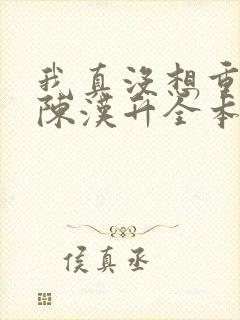 我真没想重
陈汉升全本
侯真丞